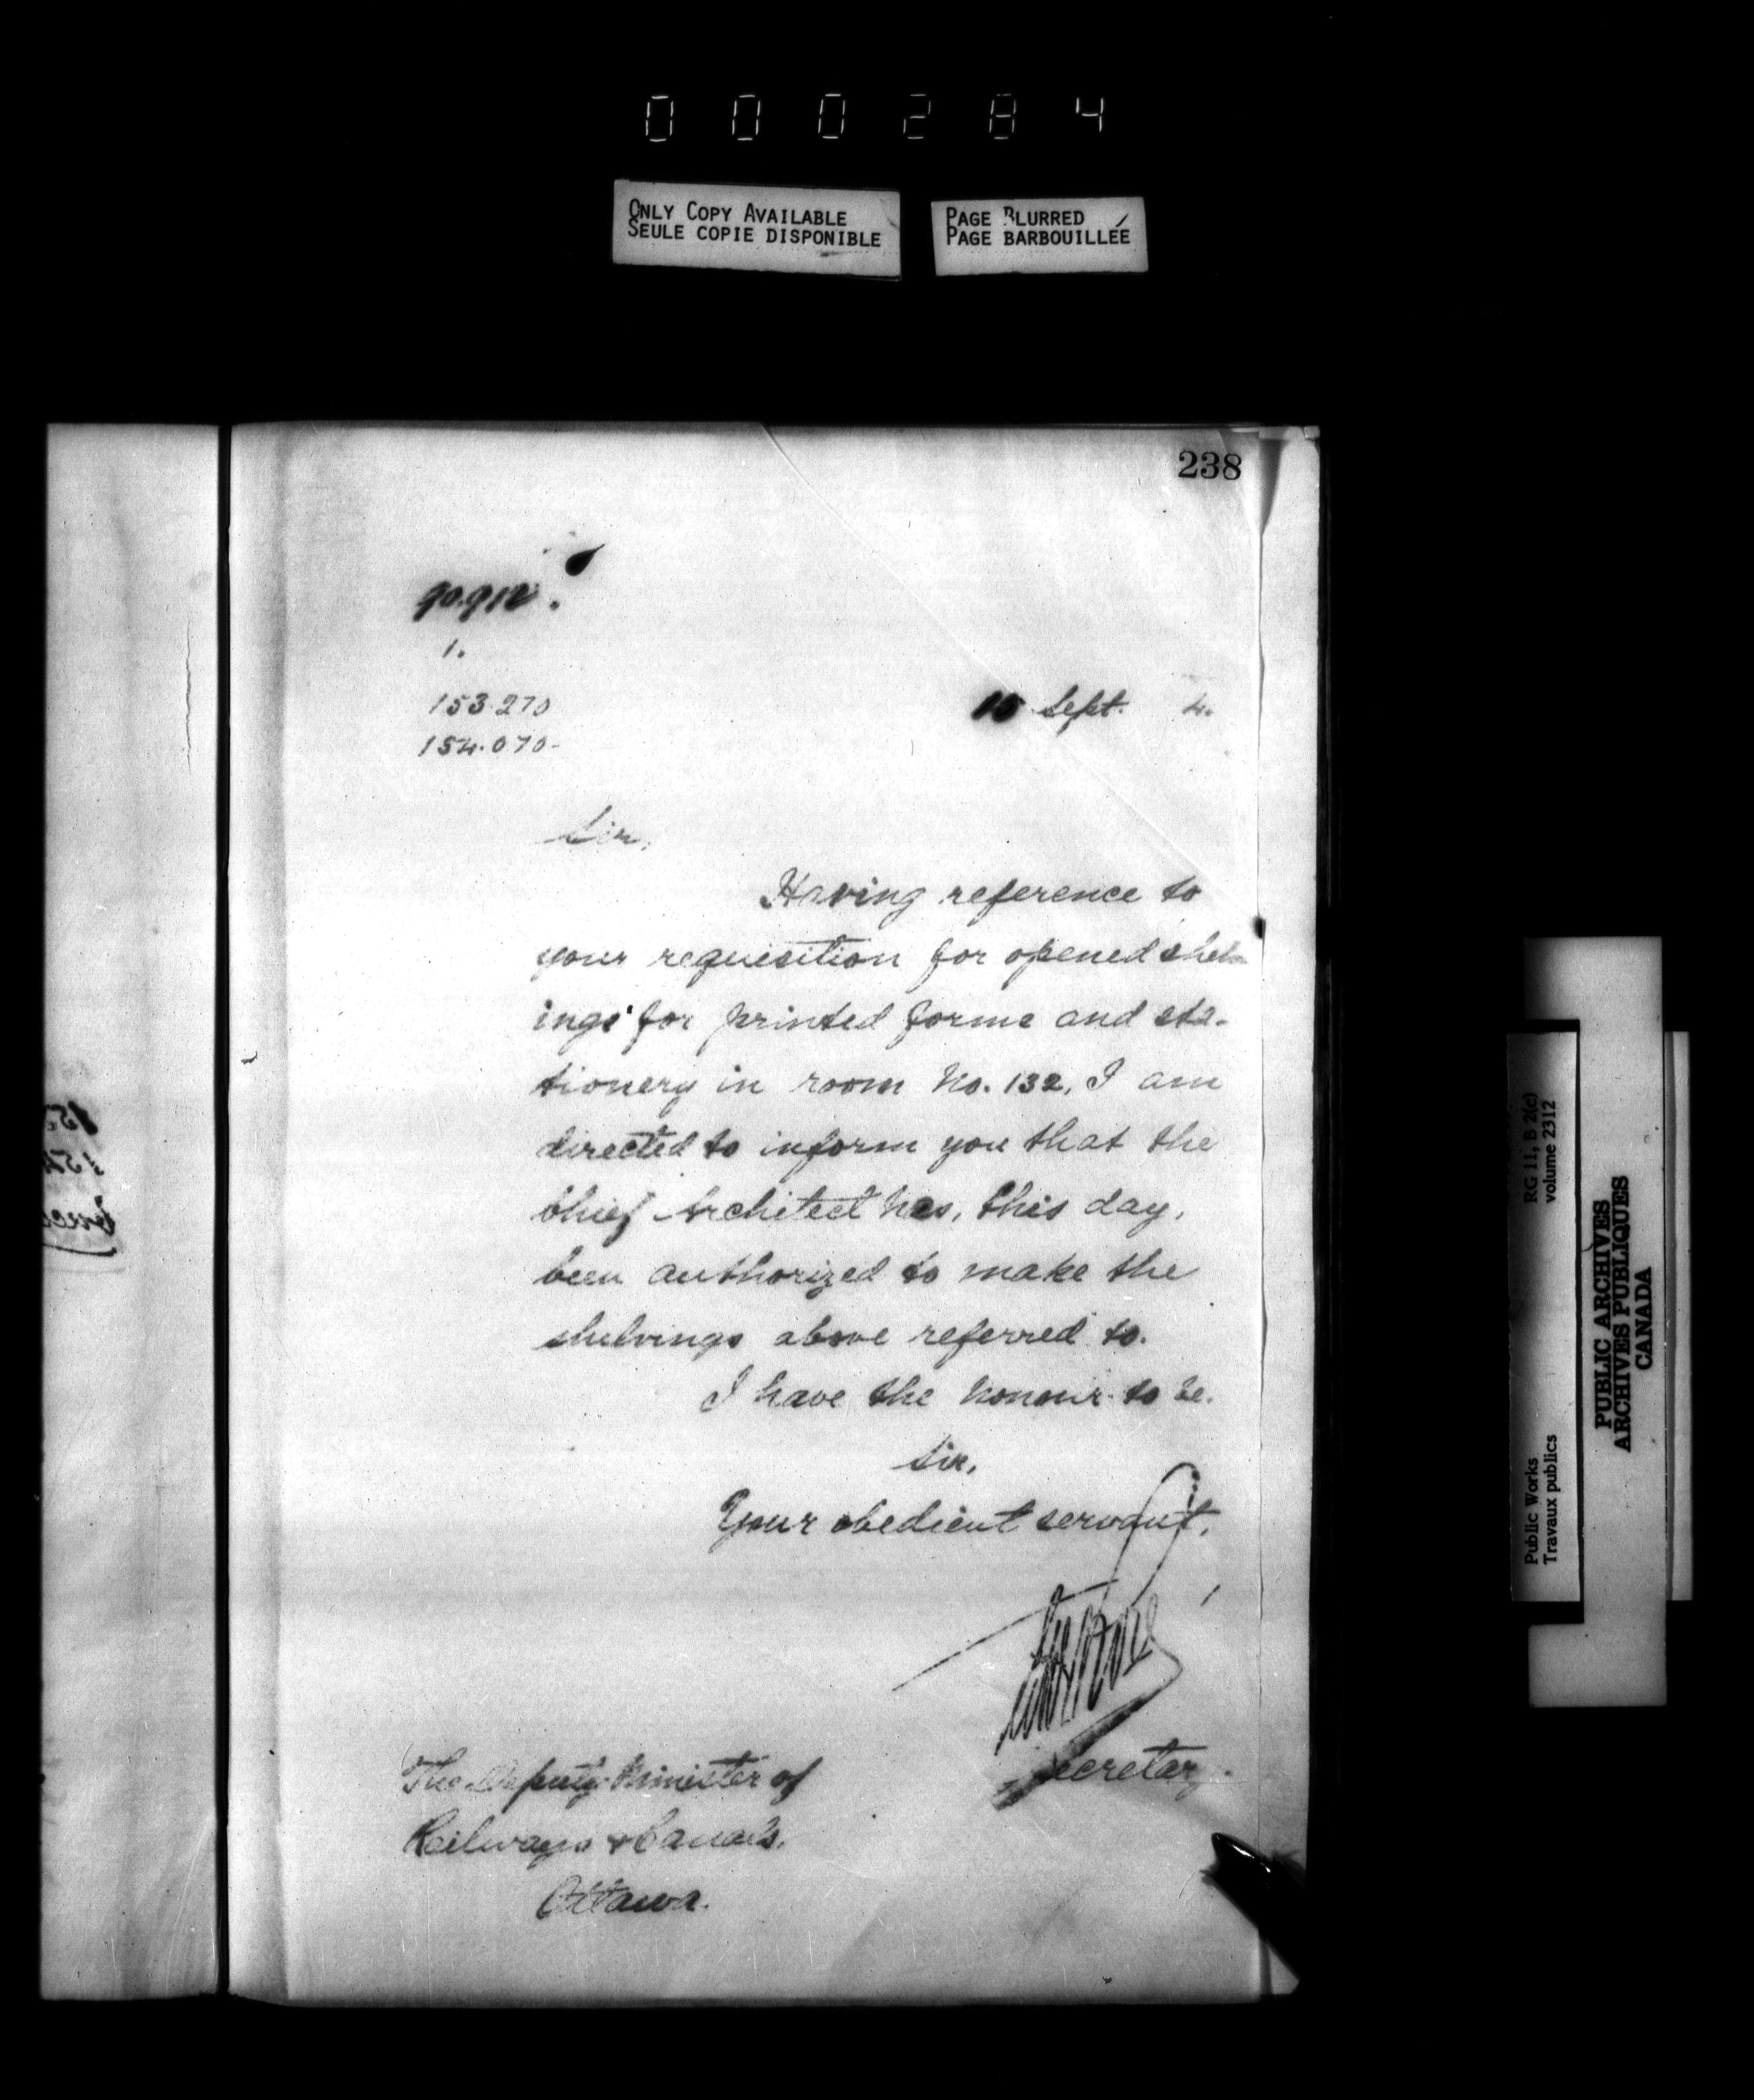 000284
ONLY COPY AVAILABLE
SEULE COPIE DISPONIBLE
PAGE BLURRED
PAGE BARBOUILLÉE
238
1.
153.270
154.070-
15 Sept. 4.
Sir,
Having reference to
your requisition for opened shelv
ings for printed forms and sta-
tionery in room No. 132, I am
directed to inform you that the
Chief Architect has, this day,
been authorized to make the
shelvings above referred to.
I have the honour to be.
Sir,
Your obedient servant,
Secretary.
The Deputy Minister of
Railways & Canals.
Ottawa.
RG 11, B 2(c)
volume 2312
Public Works
Travaux publics
PUBLIC ARCHIVES
ARCHIVES PUBLIQUES
CANADA